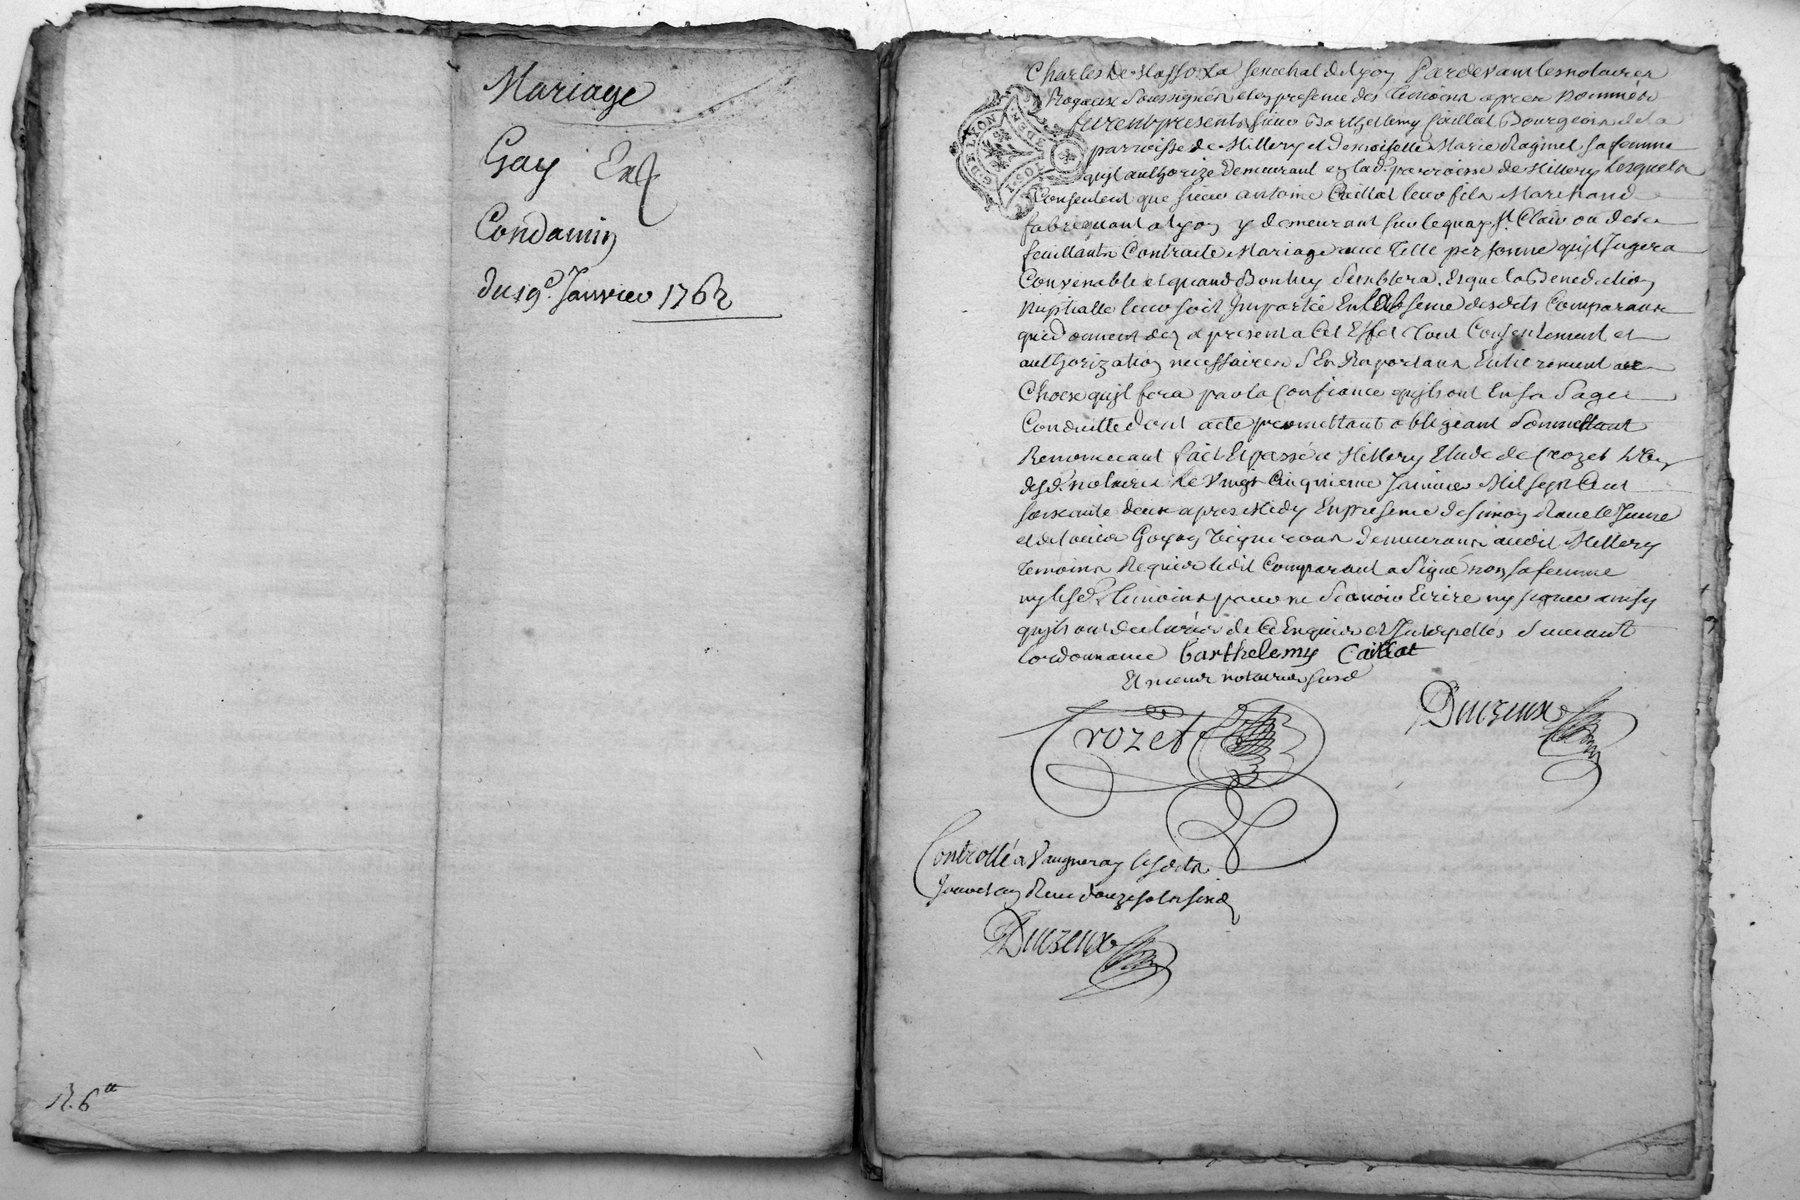 Mariage
Gay Ex
Condamin
du 19e Janvier 1762
R. 6tt
Charles de Masso La senechal de Lyon Pardevant les notaires
Royaux soussignés et en presence des temoins apres nommés
furent presents sieur Barthelemy Caillat Bourgeois de la
parroisse de Millery et Demoiselle Marie Raginel sa femme
qu'il authorize demeurant en lad. parroisse de Millery lesquels
Consentent que sieur antoine Caillat leur fils Marchand
fabriquant a Lyon y demeurant sur le quay St. Clair ou des
feuillants Contracte Mariage avec telle personne qu'il Jugera
Convenable et quand Bon luy semblera, Et que la Benediction
Nuptialle leur soit Impartie En labsence desdits Comparants
qui donnent des a present a Cet Effet tout Consentement et
authorization necessaires s'En Raportant Entierement au
Choix qu'il fera par la Confiance qu'ils ont En sa sage
Conduitte dont acte promettant obligeant soumettant
Renonceant fait Et passé a Millery Etude de Crozet L'un
desd. notaires Le vingt Cinquieme Janvier Mil sept Cent
soixante deux apres Midy En presence de simon Ravet le Jeune
et de Goyon vigneron demeurants audit Millery
temoins Requis ledit Comparant a signé non sa femme
ny lesd. temoins pour ne scavoir Ecrire ny signer ainsy
qu'ils ont declarés de Ce Enquis et Interpellés suivant
lordonnance Barthelemy Caillat
Et nous notaires sousd
Crozet Duczeux
Controllé a Vaugneray lesdits
Jour et an Reçu douze sols
Duczeux
G. DE LYON